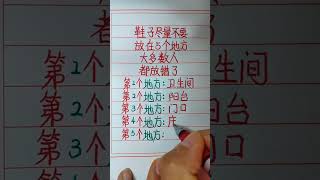 鞋子尽量不要
放在5个地方
大多数人
都放错了
第1个地方:卫生间
第2个地方:阳台
第3个地方:门口
第4个地方:
第5个地方: